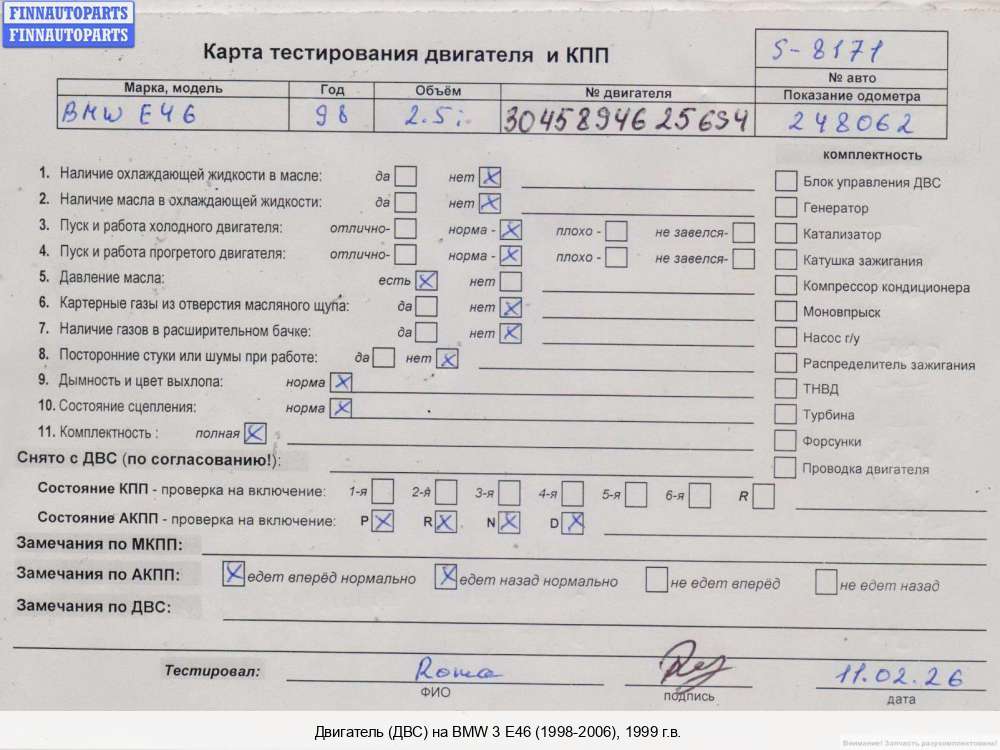 FINNAUTOPARTS
FINNAUTOPARTS
Карта тестирования двигателя и КПП
S-8171
№ авто
Марка, модель Год Объём № двигателя Показание одометра
BMW E46 98 2.5i 30458946256S4 248062
комплектность
1. Наличие охлаждающей жидкости в масле: да нет X
Блок управления ДВС
2. Наличие масла в охлаждающей жидкости: да нет X
Генератор
3. Пуск и работа холодного двигателя: отлично- норма - X плохо - не завелся-
Катализатор
4. Пуск и работа прогретого двигателя: отлично- норма - X плохо - не завелся-
Катушка зажигания
5. Давление масла: есть X нет
Компрессор кондиционера
6. Картерные газы из отверстия масляного щупа: да нет X
Моновпрыск
7. Наличие газов в расширительном бачке: да нет X
Насос г/у
8. Посторонние стуки или шумы при работе: да нет X
Распределитель зажигания
9. Дымность и цвет выхлопа: норма X
ТНВД
10. Состояние сцепления: норма X
Турбина
11. Комплектность : полная X
Форсунки
Снято с ДВС (по согласованию!):
Проводка двигателя
Состояние КПП - проверка на включение: 1-я 2-я 3-я 4-я 5-я 6-я R
Состояние АКПП - проверка на включение: P X R X N X D X
Замечания по МКПП:
Замечания по АКПП: X едет вперёд нормально X едет назад нормально не едет вперёд не едет назад
Замечания по ДВС:
Тестировал: Roma 11.02.26
ФИО подпись дата
Двигатель (ДВС) на BMW 3 E46 (1998-2006), 1999 г.в.
Внимание! Запчасть разукомплектована!